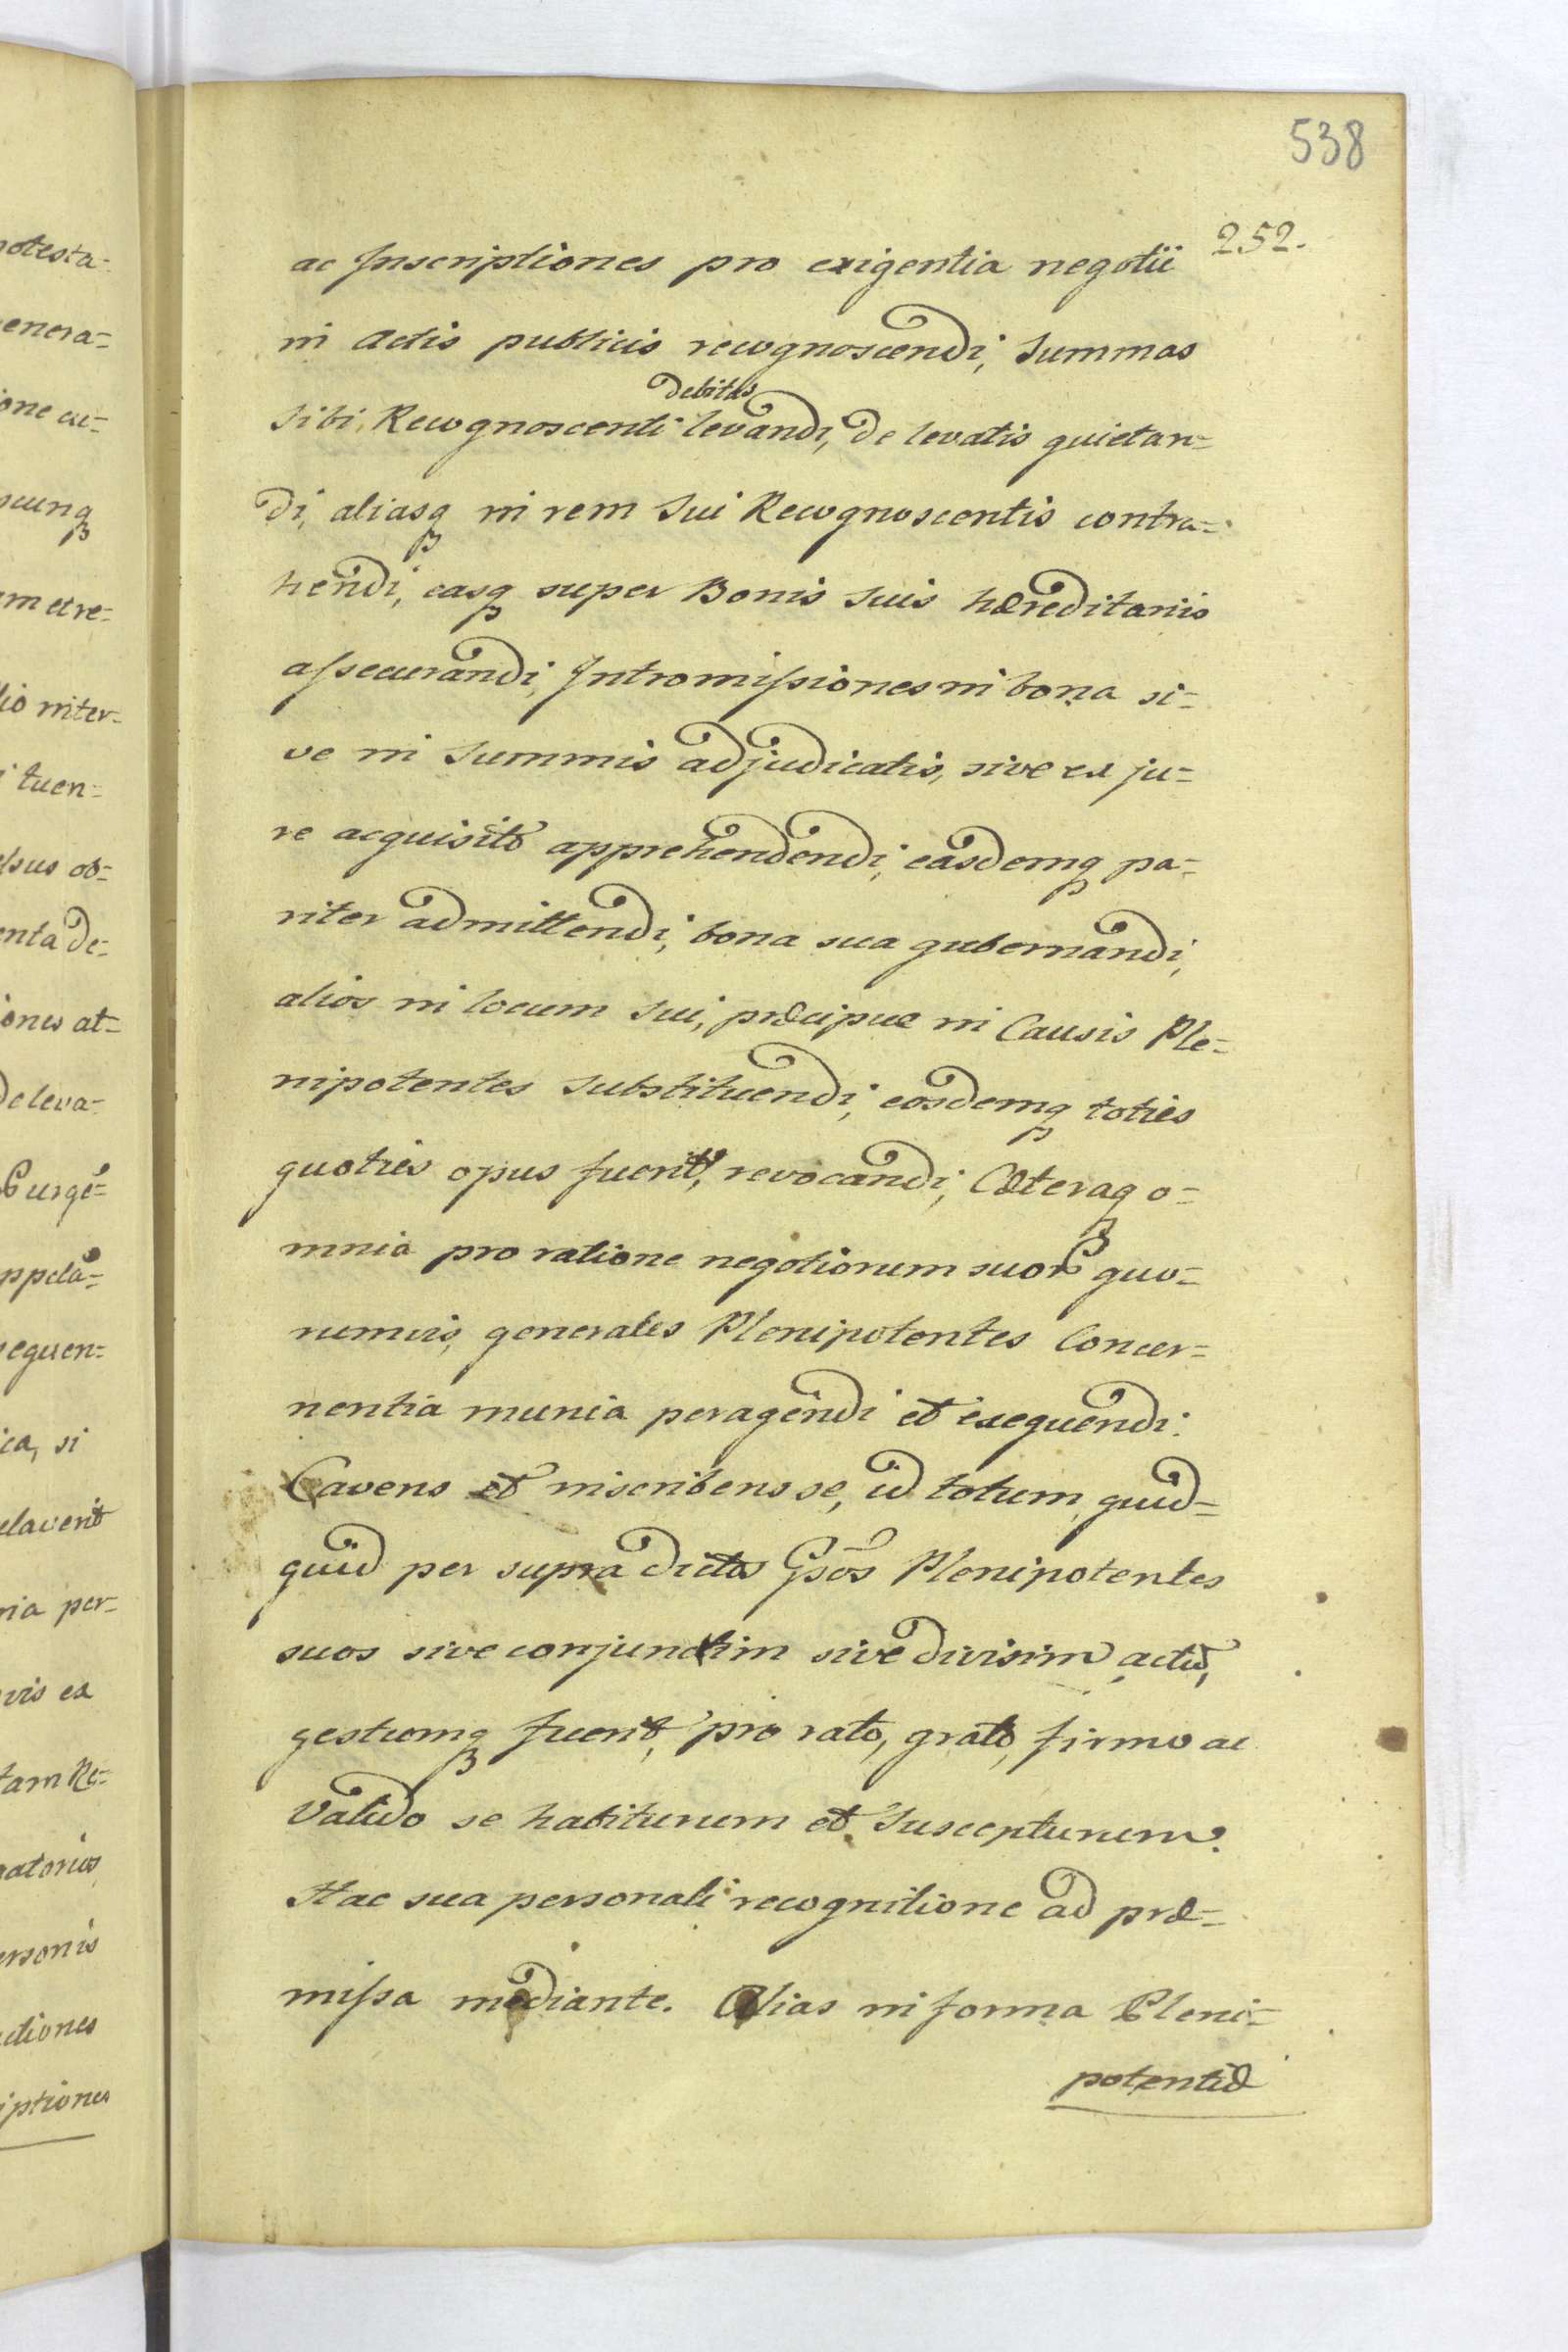 538
252.
ac Inscriptiones pro exigentia negotii
in Actis publicis recognoscendi, Summas
debitas
sibi Recognoscenti levandi, de levatis quietan=
di, aliasq in rem Sui Recognoscentis contra=
hendi, easq super Bonis Suis hæreditariis
assecurandi, Intromissiones in bona si=
ve in Summis adjudicatis, sive ex ju=
re acquisito apprehendendi, easdemq pa=
riter admittendi, bona sua gubernandi,
alios in locum Sui, præcipue in Causis Ple=
nipotentes Substituendi, eosdemq toties
quoties opus fuerit, revocandi, Cæteraq o=
mnia pro ratione negotiorum suor quo=
rumvis, generales Plenipotentes Concer=
nentia munia peragendi et exequendi.
Cavens et inscribens se, id totum, quid=
quid per supra dictos Gsos Plenipotentes
suos sive conjunctim sive divisim actu,
gestumq fuerit, pro rato, grato, firmo ac
Valido se habiturum et Suscepturum.
Hac sua personali recognitione ad præ=
missa mediante. Alias in forma Pleni=
potentiæ
potesta=
genera=
ione
scunq
lio inter=
tuen=
sus ob=
enta de=
iones at=
De leva=
ppela=
sequen=
ica, si
elaverit
ria per=
vis ex
tam Re=
atorias
ersonis
ctiones
iptiones